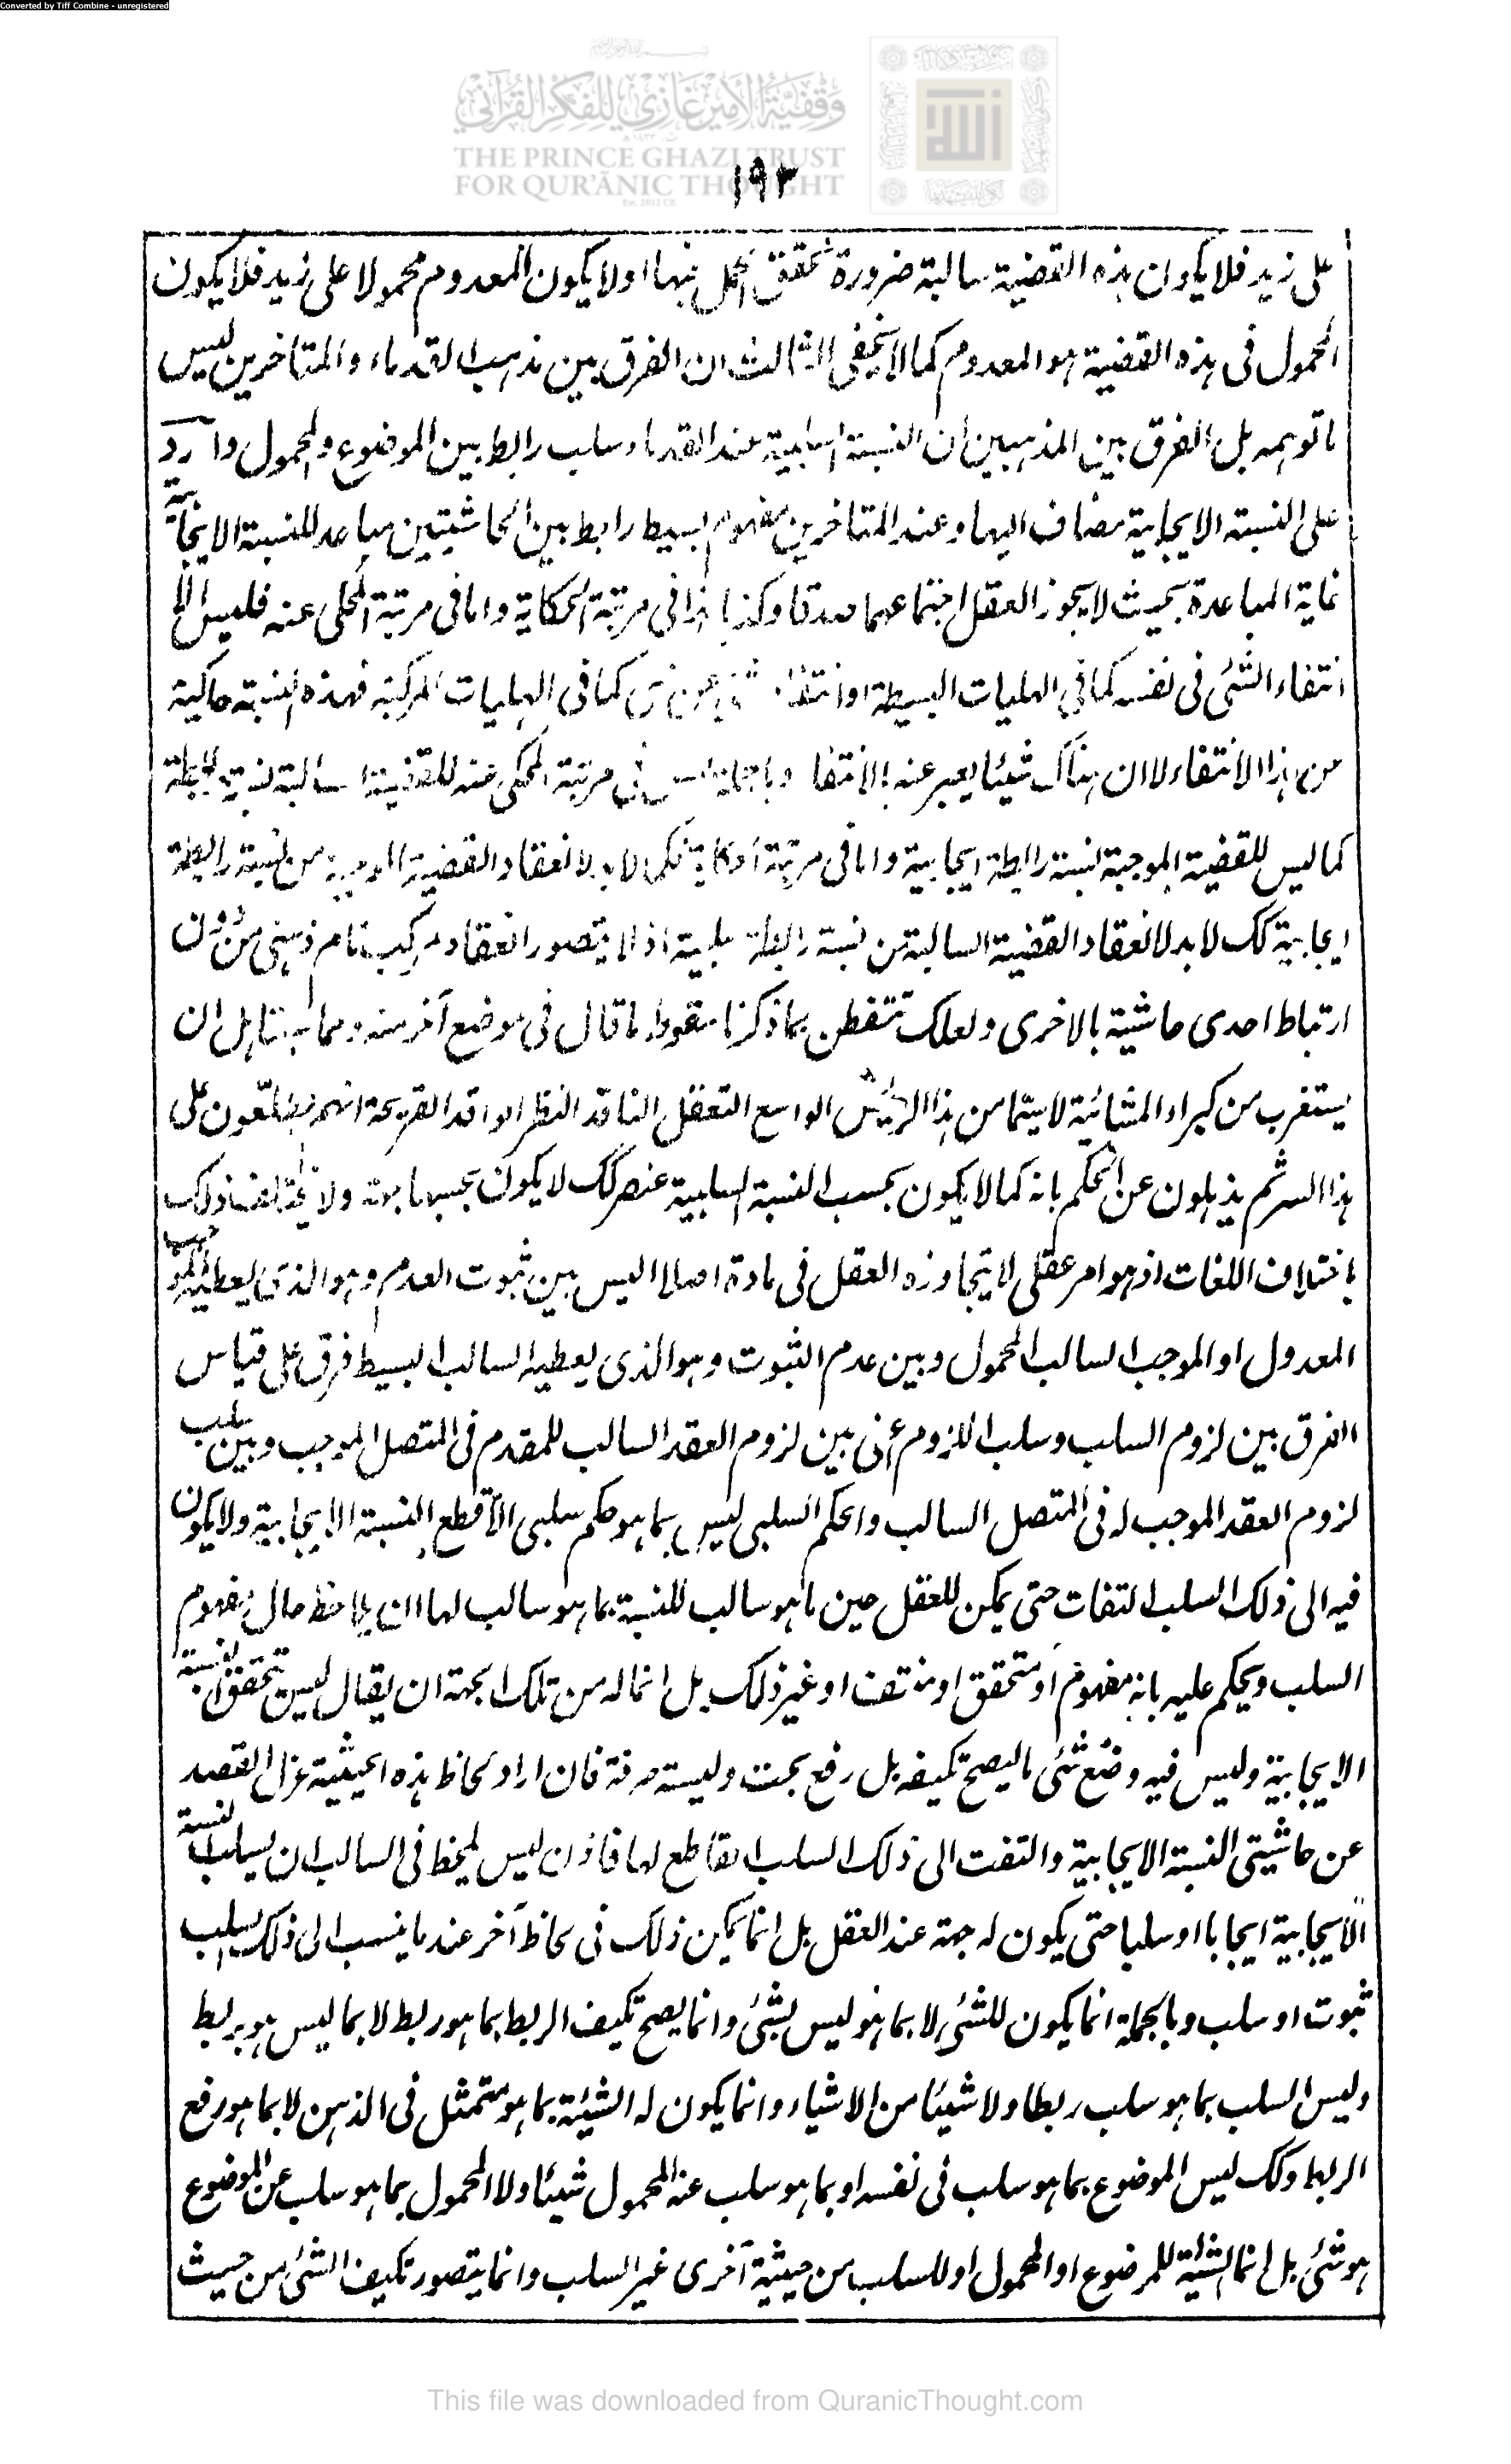 Converted by Tiff Combine - unregistered
وقفية الأمير غازي للفكر القرآني
THE PRINCE GHAZI TRUST
FOR QUR'ĀNIC THOUGHT
١٩٣
على زيد فلا يكون هذه القضية سالبة ضرورة تحقق الحمل فيها او لا يكون المعدوم محمولا على زيد فلا يكون
المحمول فى هذه القضية هو المعدوم كما لا يخفى الثالث ان الفرق بين مذهب القدماء والمتاخرين ليس
ما توهمه بل الفرق بين المذهبين أن النسبة السلبية عند القدماء سلب رابط بين الموضوع والمحمول وارد
على النسبة الايجابية مضاف اليها وعند المتاخرين مفهوم بسيط رابط بين الحاشيتين مباعد للنسبة الايجابية
غاية المباعدة بحيث لا يجوز العقل اجتماعهما صدقا وكذبا هذا فى مرتبة الحكاية واما فى مرتبة المحكى عنه فليس الا
انتفاء الشئ فى نفسه كما فى الهليات البسيطة او انتفاء شئ عن شئ كما فى الهليات المركبة فهذه النسبة حاكية
عن هذا الانتفاء لا ان هناك شيئا يعبر عنه بالانتفاء وبالجملة ليس فى مرتبة المحكى عنه للقضية السالبة نسبة رابطة
كما ليس للقضية الموجبة نسبة رابطة ايجابية واما فى مرتبة الحكاية فكما لا بد لانعقاد القضية الموجبة من نسبة رابطة
ايجابية كك لا بد لانعقاد القضية السالبة من نسبة رابطة سلبية اذ لا يتصور انعقاد مركب تام ذهنى من دون
ارتباط احدى حاشية بالاخرى ولعلك تتفطن بما ذكرنا سقوط ما قال فى موضع آخر منه ومما يستاهل ان
يستغرب من كبراء المشائية لا سيما من هذا الرئيس الواسع التعقل الناقد النظر الواقد القريحة انهم يطلعون على
هذا السر ثم يذهلون عن الحكم بانه كما لا يكون بحسب النسبة السلبية عنصر كك لا يكون بحسبها جهة ولا يختلف ذلك
باختلاف اللغات اذ هو امر عقلى لا يتجاوزه العقل فى مادة اصلا اليس بين ثبوت العدم وهو الذى يعطيه الموجب
المعدول او الموجب السالب المحمول وبين عدم الثبوت وهو الذى يعطيه السالب البسيط فرق على قياس
الفرق بين لزوم السلب وسلب اللزوم أعنى بين لزوم العقد السالب للمقدم فى المتصل الموجب وبين سلب
لزوم العقد الموجب له فى المتصل السالب والحكم السلبى ليس بما هو حكم سلبى الا قطع النسبة الايجابية ولا يكون
فيه الى ذلك السلب التفات حتى يمكن للعقل حين ما هو سالب للنسبة بما هو سالب لها ان يلاحظ حال مفهوم
السلب ويحكم عليه بانه مفهوم او متحقق او منتف او غير ذلك بل انما له من تلك الجهة ان يقال ليس تتحقق النسبة
الايجابية وليس فيه وضع شئ ما ليصح تكيفه بل رفع بحت وليسة صرفة فان اراد لحاظ هذه الحيثية عزل القصد
عن حاشيتى النسبة الايجابية والتفت الى ذلك السلب القاطع لها فاذن ليس يلحظ فى السالب ان يسلب النسبة
الايجابية ايجابا او سلبا حتى يكون له جهة عند العقل بل انما يمكن ذلك فى لحاظ آخر عند ما ينسب الى ذلك السلب
ثبوت او سلب وبالجملة انما يكون للشئ لا بما هو ليس بشئ وانما يصح تكيف الربط بما هو ربط لا بما ليس هو بربط
وليس السلب بما هو سلب ربطا ولا شيئا من الاشياء وانما يكون له الشيئية بما هو متمثل فى الذهن لا بما هو رفع
الربط وكك ليس الموضوع بما هو سلب فى نفسه او بما هو سلب عنه المحمول شيئا ولا المحمول بما هو سلب عن الموضوع
هو شئ بل انما الشيئية للموضوع او المحمول او للسلب من حيثية آخرى غير السلب وانما يتصور تكيف الشئ من حيث
This file was downloaded from QuranicThought.com